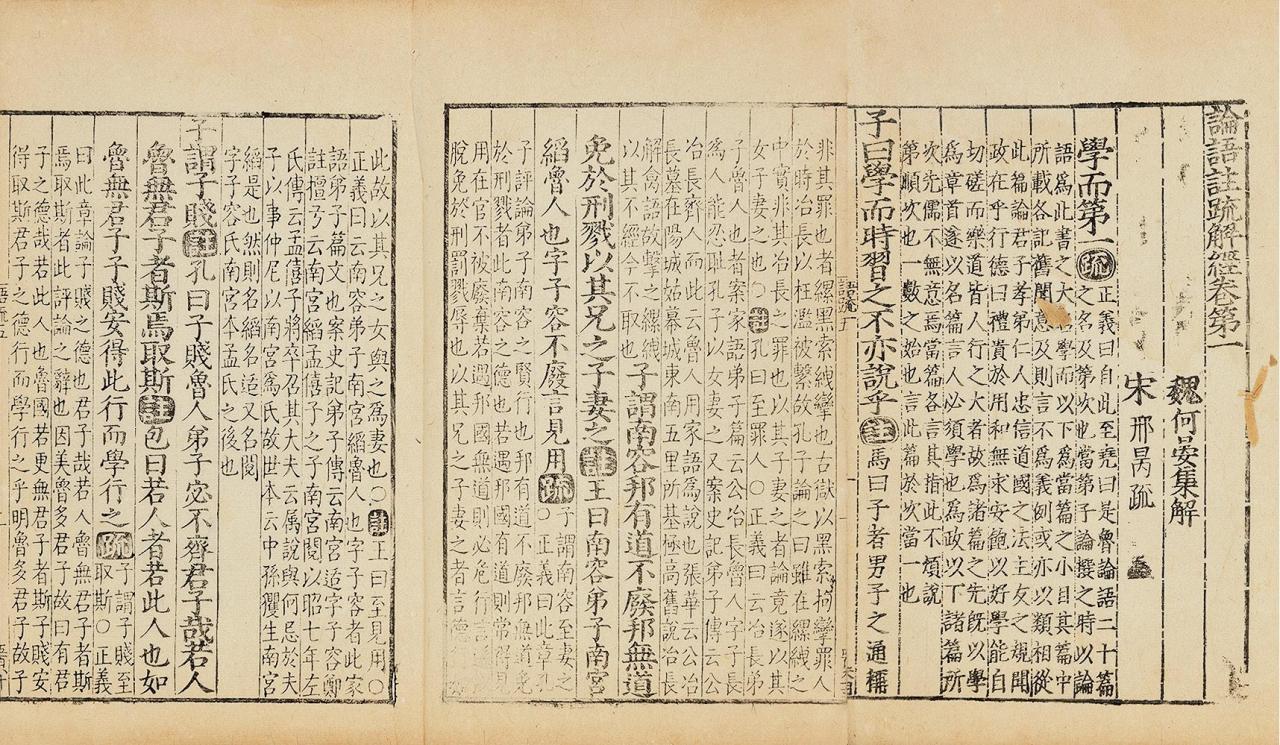 論語註疏解經卷第一
魏何晏集解
宋邢昺疏
學而第一疏正義曰自此至堯曰是魯論語二十篇
之名及第次也當弟子論撰之時以論
語爲此書之大名學而以下爲當篇之小目其篇中
所載各記舊聞意及則言不爲義例或亦以類相從
此篇論君子孝弟仁人忠信道國之法主友之規聞
政在乎行德由禮貴於用和無求安飽以好學能自
切磋而樂道皆人行之大者故爲諸篇之先旣以學
爲章首遂以名篇言人必須學也爲政以下諸篇所
次先儒不無意焉當篇各言其指此不煩說
第順次也一數之始也言此篇於次當一也
子曰學而時習之不亦說乎註馬曰子者男子之通稱
非其罪也者縲黑索絏攣也古獄以黑索拘攣罪人
於時冶長以枉濫被繫故孔子論之曰雖在縲絏之
中實非其冶長之罪也以其子妻之者論竟遂以其
女子妻之也○註孔曰至罪人○正義曰云冶長弟
子魯人也者案家語弟子篇云公冶長魯人字子長
爲人能忍恥孔子以女妻之又案史記弟子傳云公
冶長齊人而此云魯人用家語爲說也張華云公冶
長墓在陽城姑幕城東南五里所基極高舊說冶長
解禽語故繫之縲絏
以其不經今不取也
子謂南容邦有道不廢邦無道
免於刑戮以其兄之子妻之註王曰南容弟子南宮
縚魯人也字子容不廢言見用疏子謂南容至妻之
○正義曰此章孔
子評論弟子南容之賢行也邦有道不廢邦無道免
於刑戮者此南容之德也若遇邦國有道則常得見
用在官不被廢棄若遇邦國無道則必危行言遜以
脫免於刑罰戮辱也以其兄之子妻之者言德行如
此故以其兄之女與之爲妻也○註王曰至見用○
正義曰云南容弟子南宮縚魯人也字子容者此家
語弟子篇文也案史記弟子傳云南宮适字子容鄭
註檀弓云南宮縚孟僖子之子南宮閱以昭七年左
氏傳云孟僖子將卒召其大夫云屬說與何忌於夫
子以事仲尼以南宮爲氏故世本云中孫玃生南宮
縚是也然則名縚名适又名閱
字子容氏南宮本孟氏之後也
子謂子賤註孔曰子賤魯人弟子宓不齊君子哉若人
魯無君子者斯焉取斯註包曰若人者若此人也如
魯無君子子賤安得此行而學行之疏子謂子賤至
取斯○正義
曰此章論子賤之德也君子哉若人魯無君子者斯
焉取斯者此評論之辭也因美魯多君子故曰有君
子之德哉若此人也魯國若更無君子者斯子賤安
得取斯君子之德行而學行之乎明魯多君子故子